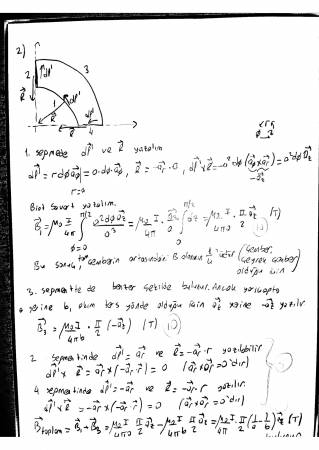 2)
2 dl' 3
R 1 dl' dl'
R R 4
1. segmentte dl' ve R yazalım
dl' = r dφ aφ = a.dφ.aφ , R = -ar.a , dl' x R = -a² dφ (aφ x ar) = a² dφ az
r=a -az
Biot Savart yazalım.
B1 = μ0 I / 4π ∫ a² dφ az / a³ = μ0 I / 4π a ∫ dφ az = μ0 I / 4π a . π/2 az (T)
φ=0 π/2 0 π/2
Bu sonuç, tam çemberin ortasındaki B alanının 1/4 'üdür (çember, çeyrek çember olduğu için
3. segmentte de benzer şekilde bulunur. Ancak yarıçapta
a yerine b, akım ters yönde olduğu için az yerine -az yazılır
B3 = μ0 I / 4π b . π/2 (-az) (T) 10
2 segmentinde dl' = ar ve R = -ar.r yazılabilir
dl' x R = ar x (-ar.r) = 0 (ar x ar = 0'dır)
4 segmentinde dl' = -ar ve R = -ar.r yazılır.
dl' x R = -ar x (-ar.r) = 0 (ar x ar = 0'dır)
Btoplam = B1 + B3 = μ0 I / 4π a π/2 az - μ0 I / 4π b π/2 az = μ0 I / 4π . π/2 (1/a - 1/b) az (T)